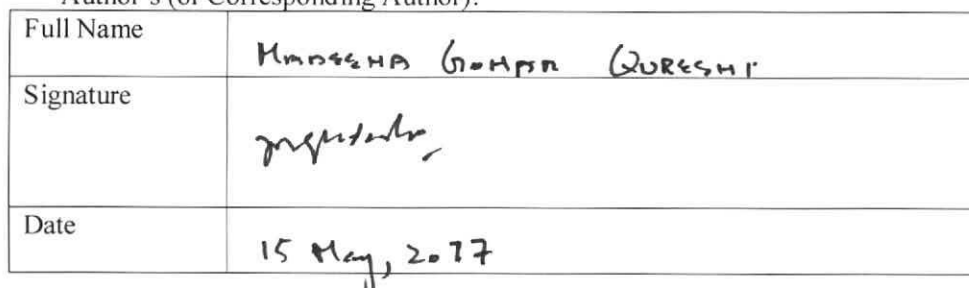 Author's (or Corresponding Author):
Full Name
MADEEHA GOHAR QURESHI
Signature
Date
15 May, 2017